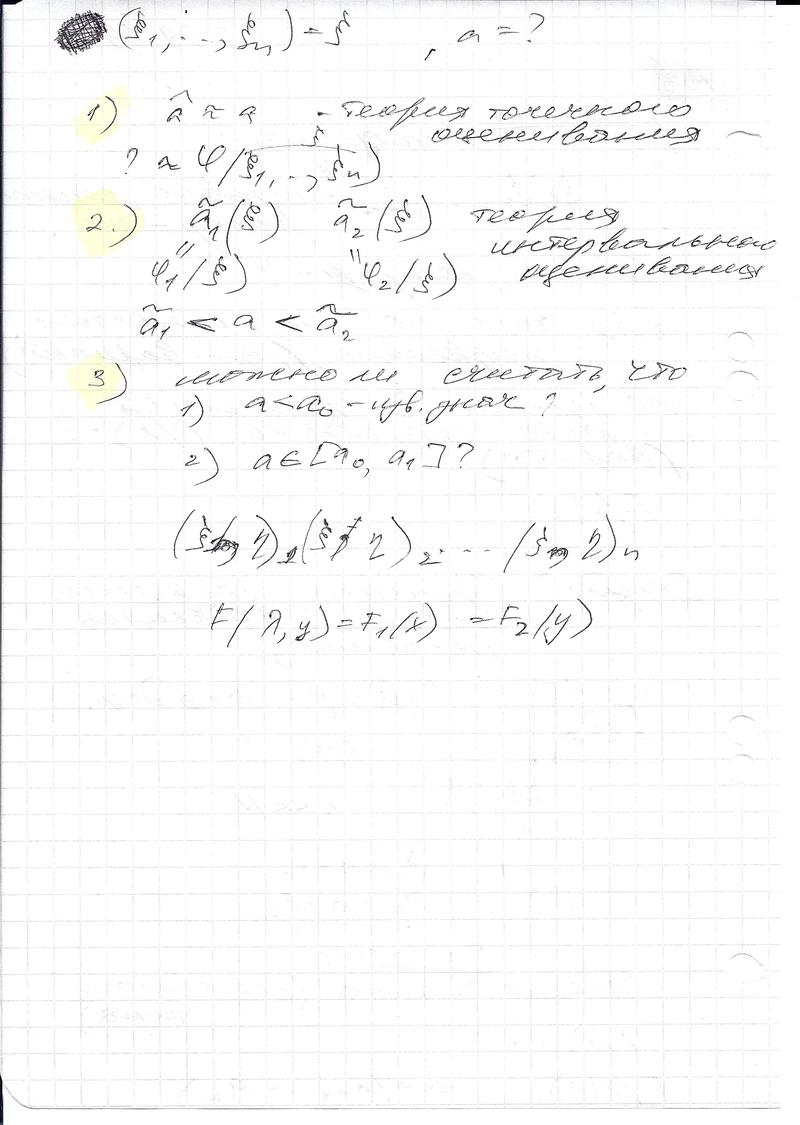 (ξ1, ..., ξn) = ξ , a = ?
1) â ≈ a - теория точечного
оценивания
ξ
? ≈ φ(ξ1, .., ξn)
2.) ã1(ξ) ã2(ξ) теория
интервального
" "
φ1(ξ) φ2(ξ) оценивания
ã1 < a < ã2
3) можно ли считать, что
1) a < a0 - изв. знач ?
2) a ∈ [a0, a1] ?
(ξ η)1 (ξ, η)2 ... (ξ η)n
F(λ, y) = F1(x) = F2(y)